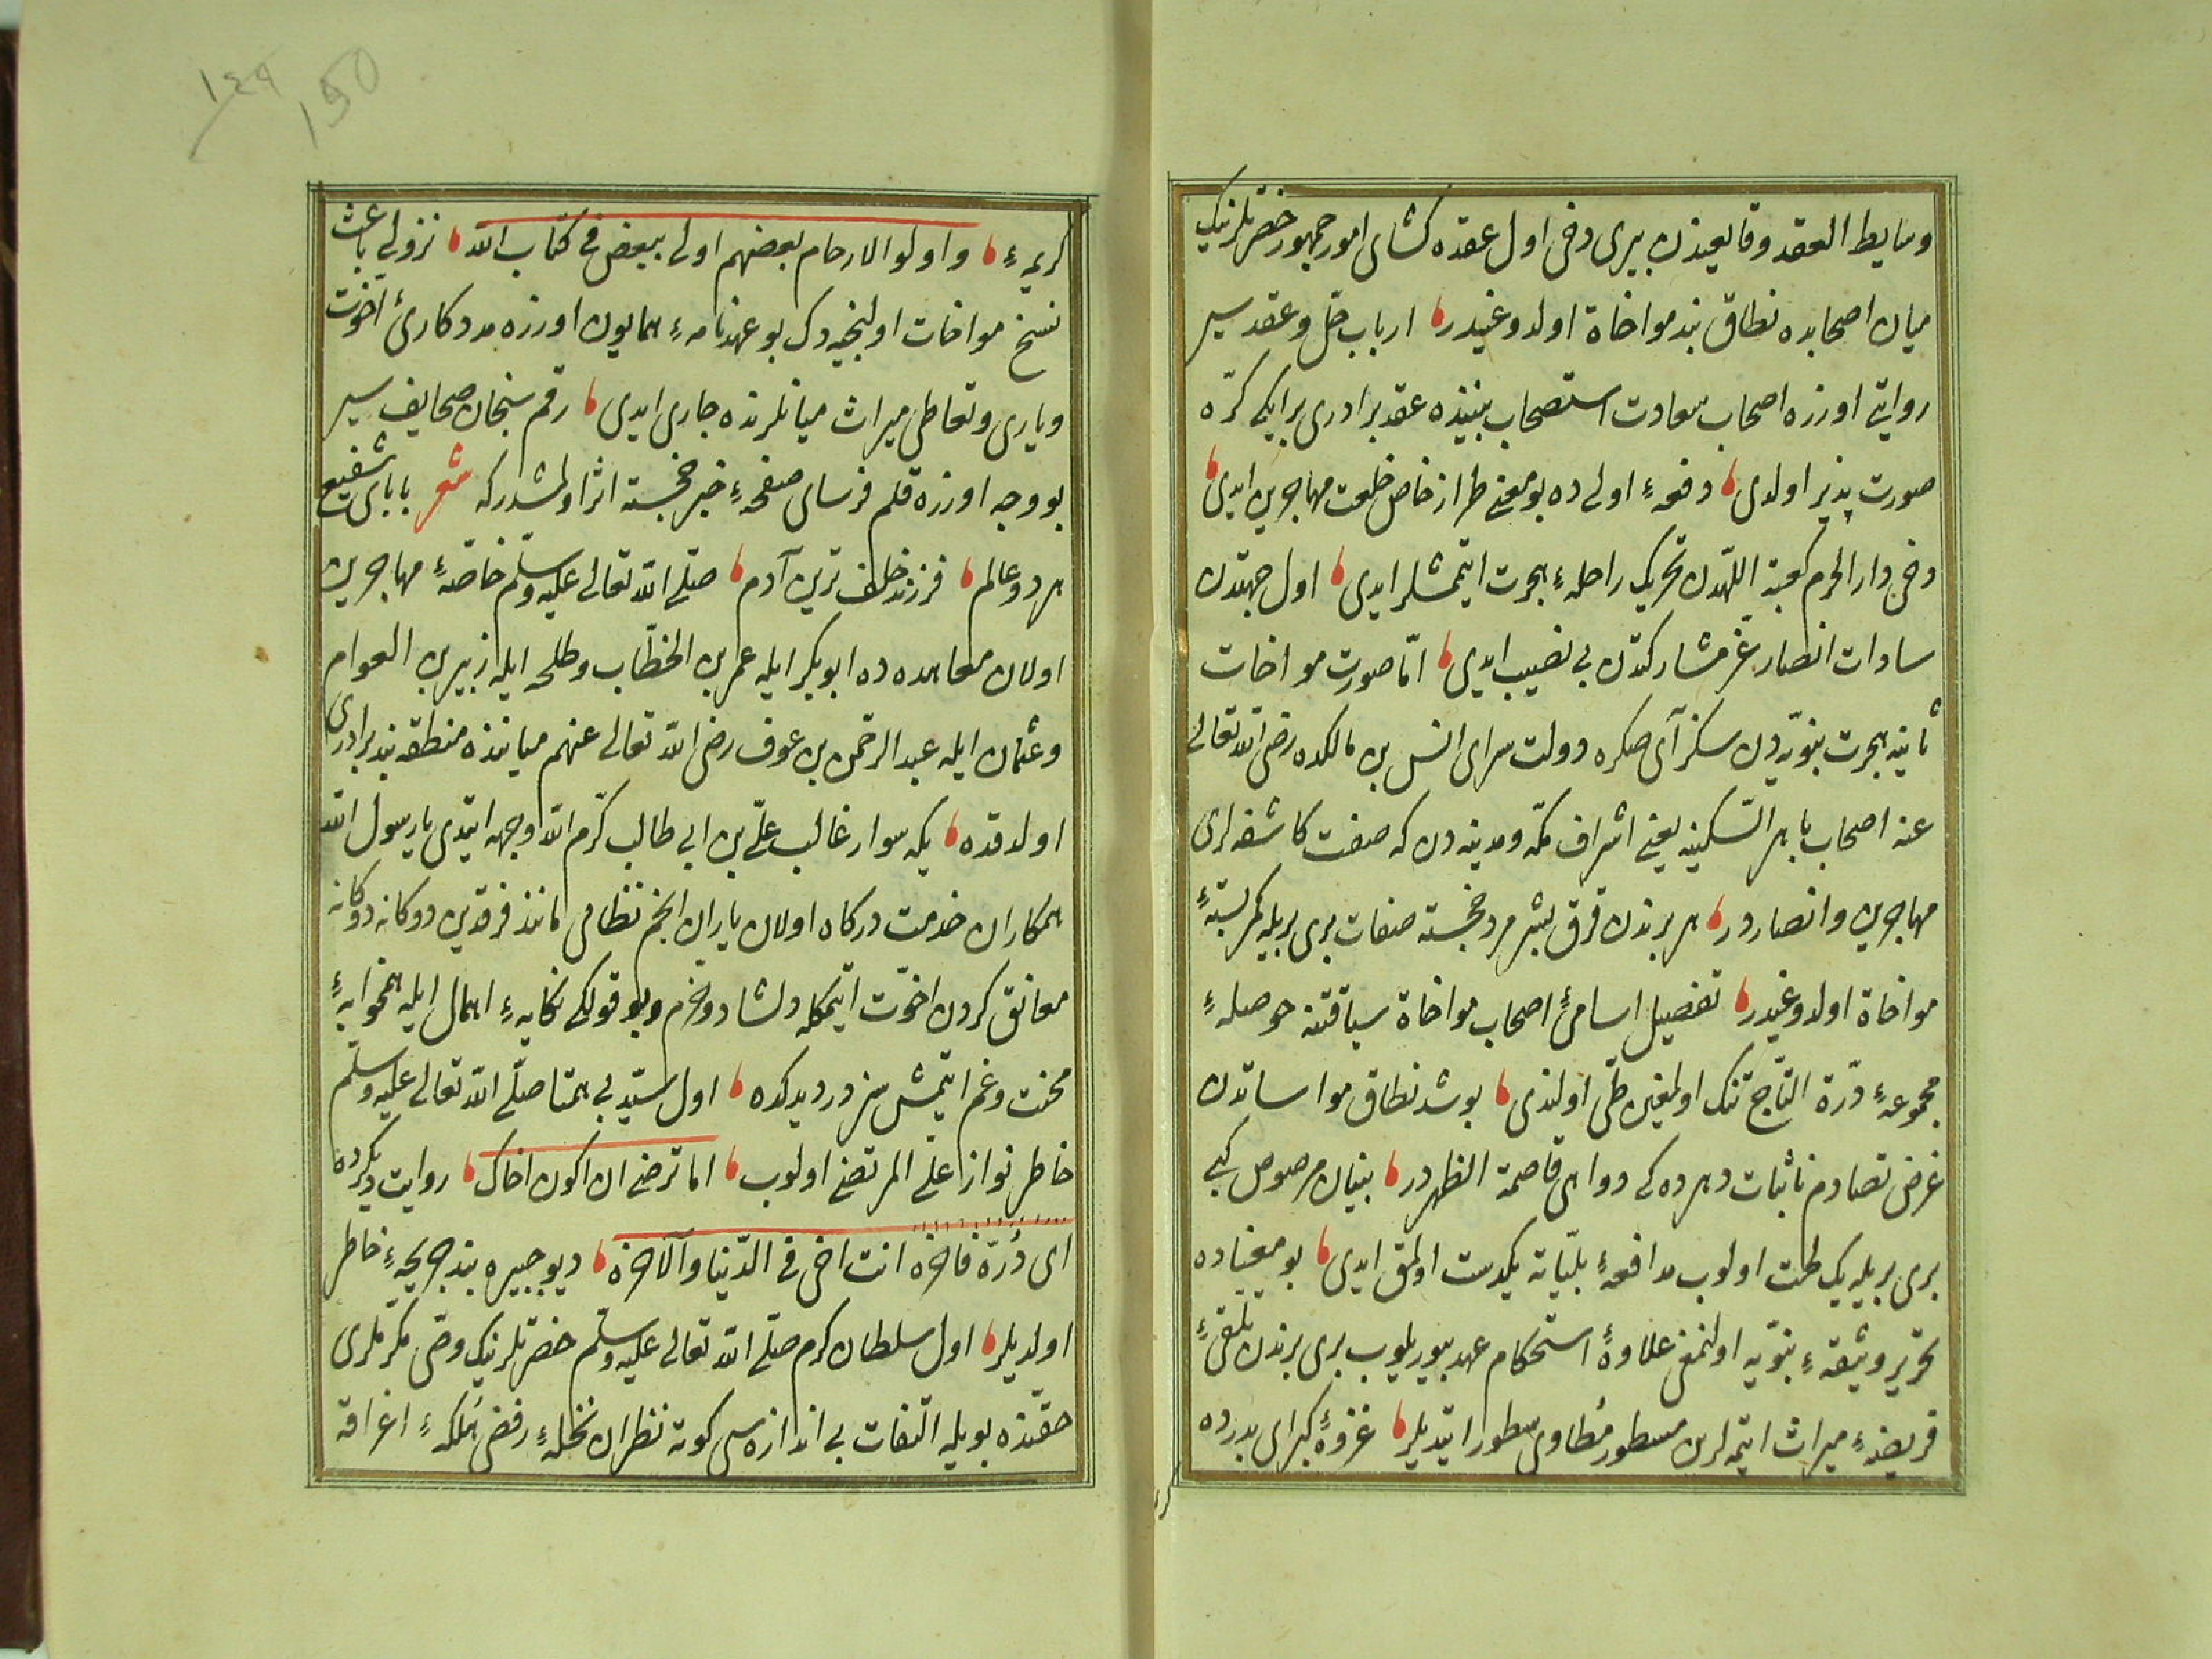 وسايط العقد وقايعيندن بيرى دخى اول عقده كشاى امور جمهور حضرتلرينك
ميان اصحابده نطاق بند مواخاة اولدوغيدر ارباب حل وعقد سير
روايتى اوزره اصحاب سعادت استصحاب بيننده عقد برادرى بر ايكى كرّه
صورت پذير اولدى دفعهٔ اولى ده بو معنى طراز خاص خلعت مهاجرين ايدى
دخى دار الحرم كعبة اللّهدن تحريك راحلهٔ هجرت ايتمشلر ايدى اول جهتدن
سادات انصار عزّ مشاركتدن بى نصيب ايدى امّا صورت مواخات
ثانيه هجرت نبويّه دن سكز آى صكره دولت سراى انس بن مالكده رضى الله تعالى
عنه اصحاب باهر السّكينه يعنى اشراف مكّه ومدينه دن كه صفت كاشفه لرى
مهاجرين وانصاردر هر برندن قرق بشر مرد خجسته صفات برى بريله كمر بستهٔ
مواخاة اولدوغيدر تفصيل اسامئ اصحاب مواخاة سياقتنه حوصلهٔ
مجموعهٔ درّة التاج تنك اولمغين طىّ اولندى بو شد نطاق مواساتدن
غرض تصادم نائبات دهرده كه دواهى قاصمة الظهردر بنيان مرصوص كبى
برى بريله يك لخت اولوب مدافعهٔ بليّاته يكدست اولمق ايدى بو معناده
تحرير وثيقهٔ نبويّه اولنمغى علاوهٔ استحكام عهد بيوريلوب برى برندن تلقئ
فريضهٔ ميراث ايتمه لرين مسطور مطاوى سطور ايتديلر غزوهٔ كبراى بدرده
كريمهٔ واولو الارحام بعضهم اولى ببعض فى كتاب الله نزولى باعث
نسخ مواخات اولنجيه دك بو عهدنامهٔ همايون اوزره مددكارئ اخوّت
ويارى وتعاطى ميراث ميانلرنده جارى ايدى رقم سنجان صحايف سير
بو وجه اوزره قلم فرساى صفحهٔ خبر خجسته اثر اولمشدر كه شعر باباى شفيع
هر دو عالم فرزند خلف ترين آدم صلّى الله تعالى عليه وسلّم خاصّهٔ مهاجرين
اولان معاهده ده ابو بكر ايله عمر بن الخطّاب وطلحه ايله زبير بن العوام
وعثمان ايله عبد الرحمن بن عوف رضى الله تعالى عنهم ميانده منطقه بند برادرى
اولدقده يكه سوار غالب علىّ بن ابى طالب كرّم الله وجهه ايتدى يا رسول الله
همكاران خدمت دركاه اولان ياران انجم نظامى مانند فرقدين دوكانه دوكانه
معانق كردن اخوّت ايتمكله دلشاد وخرّم وبو قولكى نكايهٔ اهمال ايله همخوابهٔ
محنت وغم ايتمش سز ديدكده اول سيّد بى همتا صلّى الله تعالى عليه وسلّم
خاطر نواز علىّ المرتضى اولوب اما ترضى ان اكون اخاك روايت ديكرده
اى درّهٔ فاخره انت اخى فى الدّنيا والآخرة ديو جبيره بند جريحهٔ خاطر
اولديلر اول سلطان كرم صلّى الله تعالى عليه وسلّم حضرتلرينك وصّى مكرّملرى
حقّنده بويله التفات بى اندازه سى كوته نظران نحلهٔ رفض مهلكهٔ اغراقه
١٤٩
١٥٠